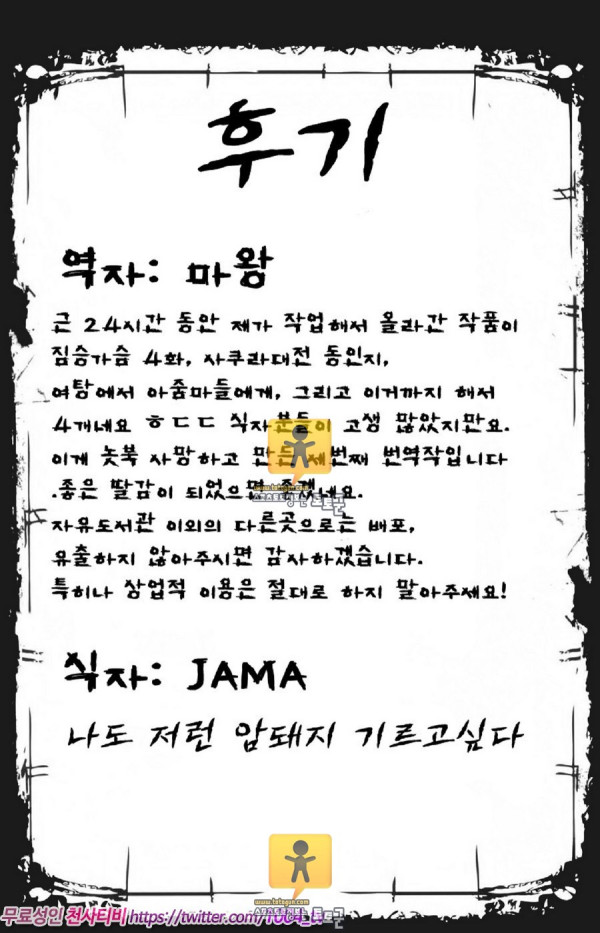 후기
역자: 마왕
근 24시간 동안 제가 작업해서 올라간 작품이
짐승가슴 4화, 사쿠라대전 동인지,
여탕에서 아줌마들에게, 그리고 이거까지 해서
4개네요 ㅎㄷㄷ 식자분들이 고생 많았지만요.
이게 놋북 사망하고 만든 세번째 번역작입니다
.좋은 딸감이 되었으면 좋겠네요.
자유도서관 이외의 다른곳으로는 배포,
유출하지 않아주시면 감사하겠습니다.
특히나 상업적 이용은 절대로 하지 말아주세요!
식자: JAMA
나도 저런 암돼지 기르고싶다
무료성인 천사티비 https://twitter.com/